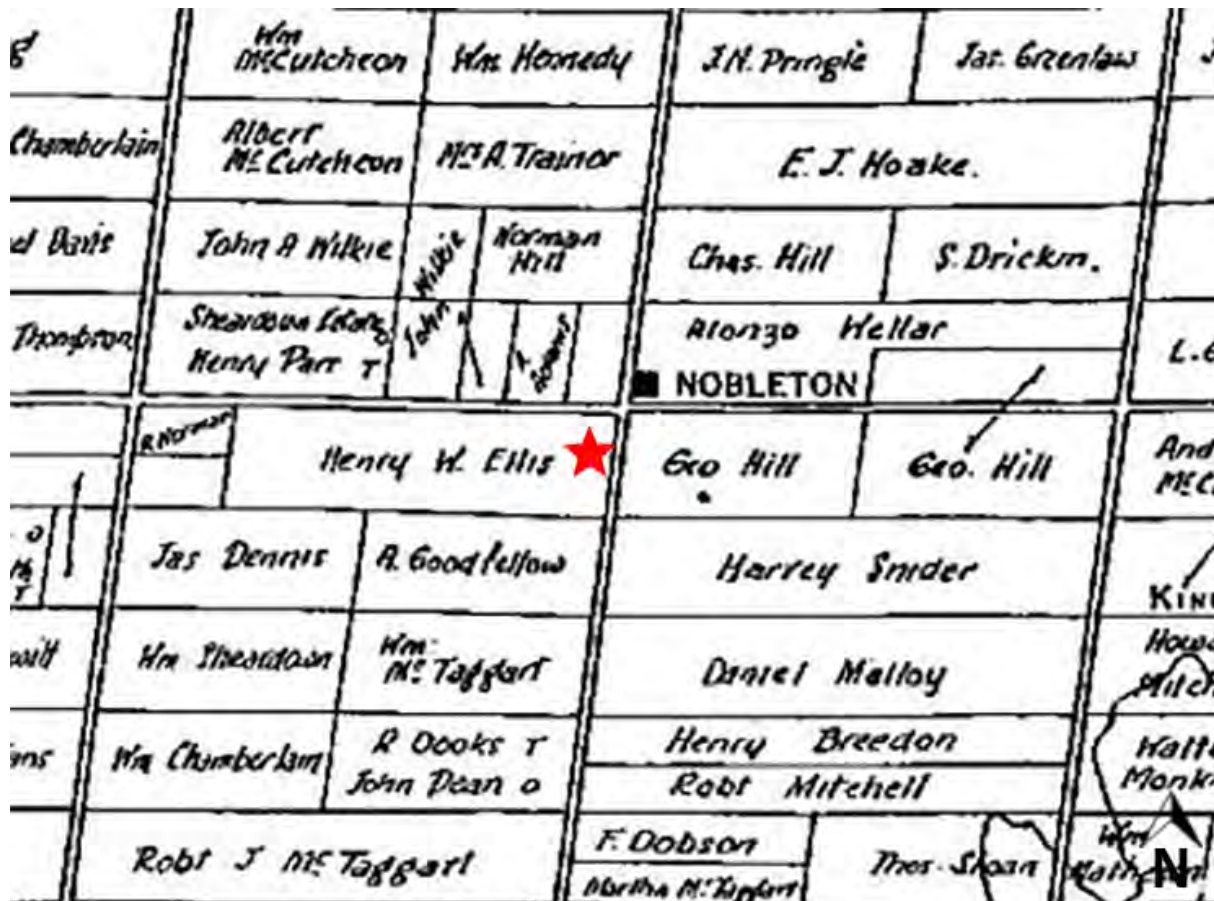 Wm
McCutcheon
Wm Kennedy
J.N. Pringle
Jas. Greenlaw
Chamberlain
Albert
McCutcheon
Mrs A. Trainor
E. J. Hoake.
Davis
John A Wilkie
John Wilkie
Norman
Hill
Chas. Hill
S. Drickm.
Thompson
Sheardown
Henry Parr T
Alonzo Wellar
L.
NOBLETON
R Norman
Henry W. Ellis
Geo Hill
Geo. Hill
And
Mc
O
T
Jas Dennis
A. Goodfellow
Harvey Snider
KIN
Wm Sheardown
Wm.
McTaggart
Daniel Malloy
How
Mitch
ans
Wm Chamberlain
R Dooks T
John Dean O
Henry Breedon
Robt Mitchell
Watt
Monk
Robt J McTaggart
F. Dobson
Martha McTaggart
Thos. Sloan
Wm
N